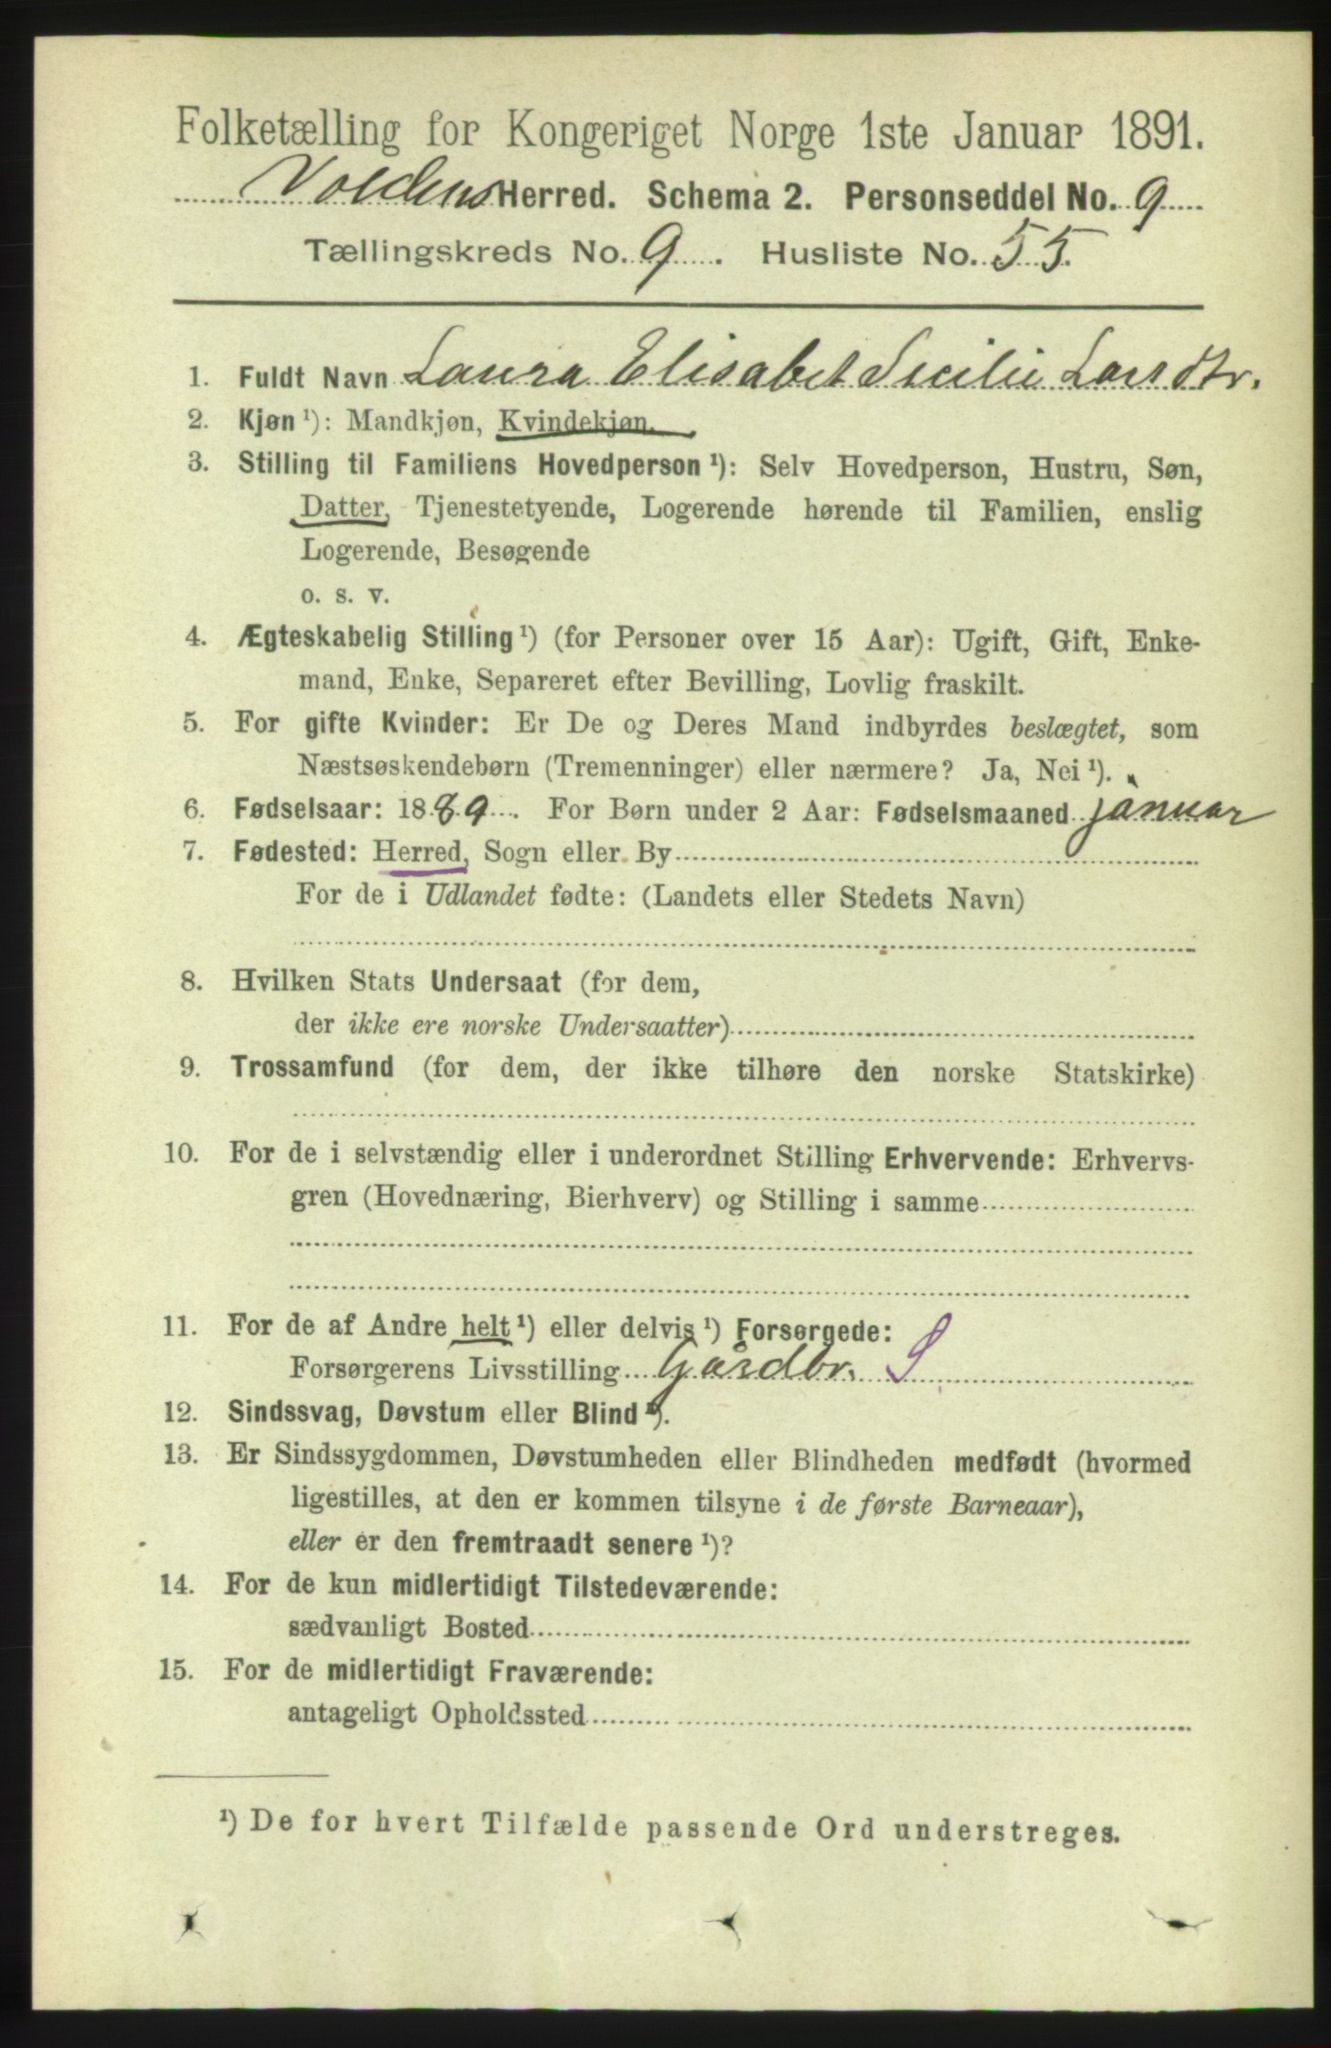 Folketælling for Kongeriget Norge 1ste Januar 1891.
Voldens Herred. Schema 2. Personseddel No. 9
Tællingskreds No. 9. Husliste No. 55.
1. Fuldt Navn Laura Elisabet Secilie Larsdtr.
2. Kjøn ¹): Mandkjøn, Kvindekjøn.
3. Stilling til Familiens Hovedperson ¹): Selv Hovedperson, Hustru, Søn,
Datter, Tjenestetyende, Logerende hørende til Familien, enslig
Logerende, Besøgende
o. s. v.
4. Ægteskabelig Stilling ¹) (for Personer over 15 Aar): Ugift, Gift, Enke-
mand, Enke, Separeret efter Bevilling, Lovlig fraskilt.
5. For gifte Kvinder: Er De og Deres Mand indbyrdes beslægtet, som
Næstsøskendebørn (Tremenninger) eller nærmere? Ja, Nei ¹).
6. Fødselsaar: 1889. For Børn under 2 Aar: Fødselsmaaned januar
7. Fødested: Herred, Sogn eller By
For de i Udlandet fødte: (Landets eller Stedets Navn)
8. Hvilken Stats Undersaat (for dem,
der ikke ere norske Undersaatter)
9. Trossamfund (for dem, der ikke tilhøre den norske Statskirke)
10. For de i selvstændig eller i underordnet Stilling Erhvervende: Erhvervs-
gren (Hovednæring, Bierhverv) og Stilling i samme
11. For de af Andre helt ¹) eller delvis ¹) Forsørgede:
Forsørgerens Livsstilling Gårdbr. S
12. Sindssvag, Døvstum eller Blind ¹).
13. Er Sindssygdommen, Døvstumheden eller Blindheden medfødt (hvormed
ligestilles, at den er kommen tilsyne i de første Barneaar),
eller er den fremtraadt senere ¹)?
14. For de kun midlertidigt Tilstedeværende:
sædvanligt Bosted
15. For de midlertidigt Fraværende:
antageligt Opholdssted
¹) De for hvert Tilfælde passende Ord understreges.